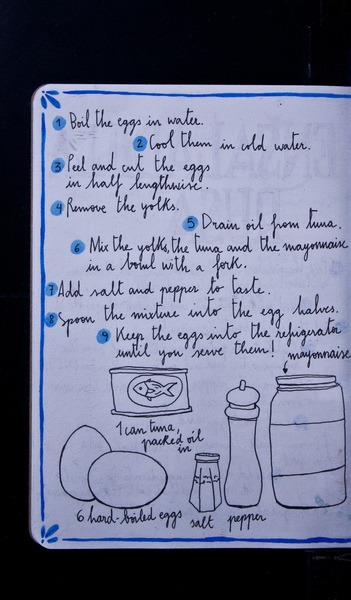 1 Boil the eggs in water.
2 Cool them in cold water.
3 Peel and cut the eggs
in half lengthwise.
4 Remove the yolks.
5 Drain oil from tuna.
6 Mix the yolks, the tuna and the mayonnaise
in a bowl with a fork.
7 Add salt and pepper to taste.
8 Spoon the mixture into the egg halves.
9 Keep the eggs into the refrigerator
until you serve them!
mayonnaise
1 can tuna,
packed oil
in
6 hard-boiled eggs
salt pepper